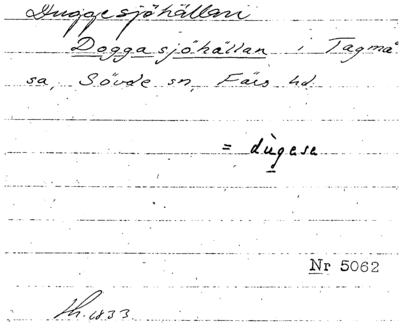 Duggesjöhällan
Doggasjöhällan i Tagmå
sa, Sövde sn, Färs hd.
= dùgasa
Nr 5062
1833